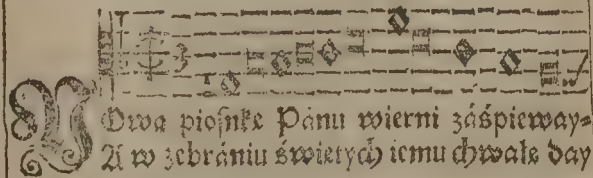 Nową piosnke Pánu wierni záśpieway=
A w zebrániu świetych iemu chwałe day